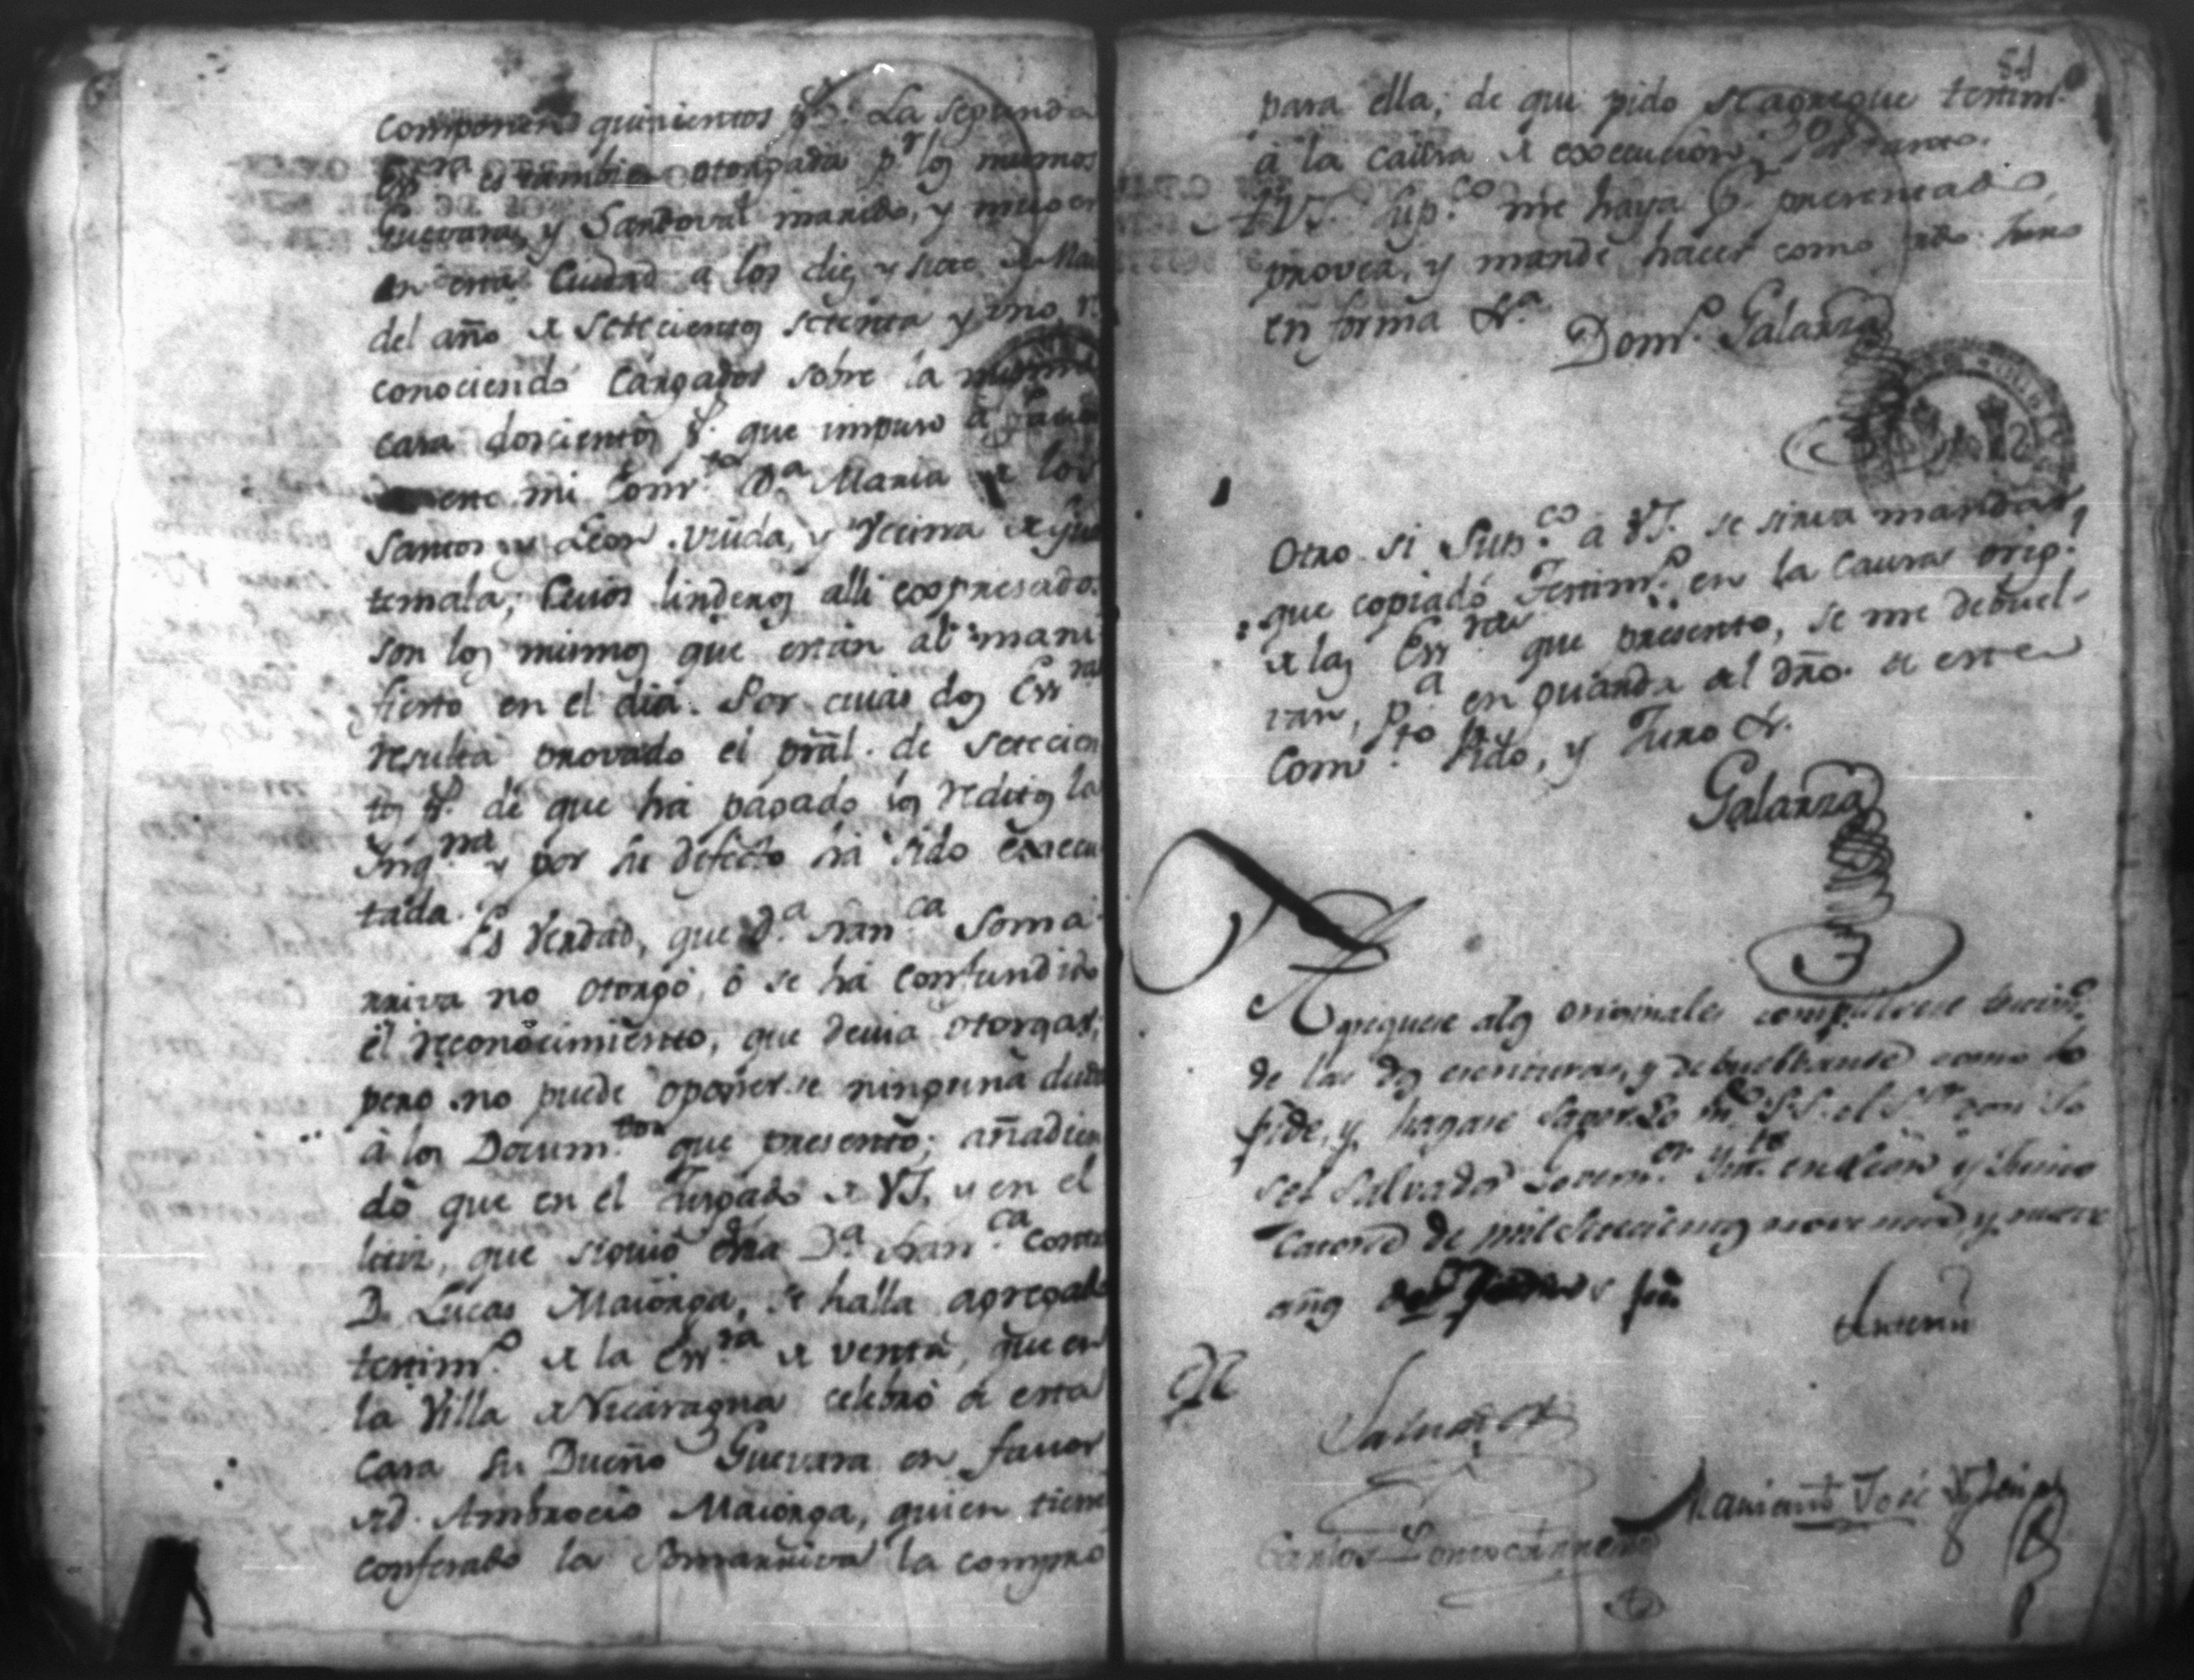 componen quinientos p.s La segunda
Ess.ra es tambien otorgada p.r los mismos
Guevara, y Sandoval marido, y muger
en esta Ciudad a los diez y siete de
del año de setecientos setenta y uno, re
conociendo cargados sobre la misma
casa doscientos p.s que impuso a
mi Com.te D.a Maria de los
Santos y Leon viuda, y vecina de Gua
temala, cuios linderos alli expresados
son los mismos que están al mani
fiesto en el dia. Por cuias dos Ess.ras
resulta provado el pral. de setecien
tos p.s de que há pagado los reditos la
Inq.na y por su defecto ha sido execu
tada.
Es verdad, que d.a Fran.ca Soma
rriva no otorgó, ó se há confundido
el reconocimiento, que devia otorgar;
pero no puede oponerse ninguna duda
á los Docum.tos que presento; añadien
do que en el Jusgado de VS. y en el
que siguió dha D.a Fran.ca contra
D. Lucas Maiorga, se halla agregado
testim.o de la Ess.ra de venta, que en
la Villa de Nicaragua celebró de esta
casa su Dueño Guevara en favor
de D. Ambrocio Maiorga, quien tiene
confesado la Somarriva la compró
51
para ella; de que pido se agregue testim.o
á la causa de execucion; Por tanto.
A VS. sup.co me haya p.r presentado,
provea, y mande hacer como pido juro
en forma &.a
Dom.o Galarza
Otro si Sup.co á VS. se sirva mandar,
que copiado Testim.o en la causa orig.l
de las Ess.ras que presento, se me debuel-
van, p.a en guarda del dro. de este
Com.to Pido, y Juro &.
Galarza
Agreguese a los originales compulsese testim.o
de las dos escrituras, y debuelbanse como lo
pide, y hagase saver. Lo m.do S.S. el S.or don Jo
sef Salvador Govern.or Yn.te en Leon y Junio
catorce de mil setecientos noventa y nueve
años
Antemi
Salvador
Mariano José
Carlos